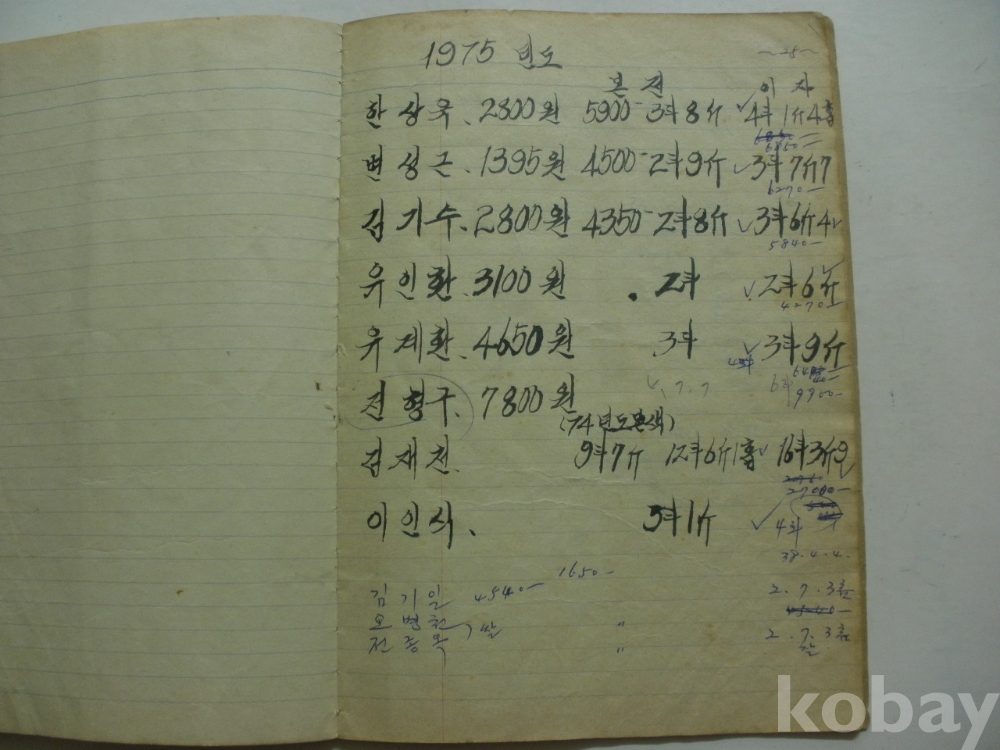 1975 년도
~25~
본 전 이 자
한상욱. 2800원 5900- 3斗8斤 ✓4斗1斤4홉
6850-
변성근. 1395원 4500- 2斗9斤 ✓3斗7斤7
6270-
김기수. 2800원 4350- 2斗8斤 ✓3斗6斤4
5840-
유인환. 3100원 . 2斗 ✓2斗6斤
4270-
유제환. 4650원 3斗 ✓3斗9斤
4斗
4.7.7 6斗 9900-
전형구. 7800원
(74년도본색)
김재천. 9斗7斤 12斗6斤1홉 ✓ 16斗3斤9
27000-
이인식. 3斗1斤 ✓ 4斗
38.4.4.
1650-
김기일 4540- 2.7.3홉
오병천 〃
전종목 , 쌀 〃 2.7.3홉
쌀
kobay